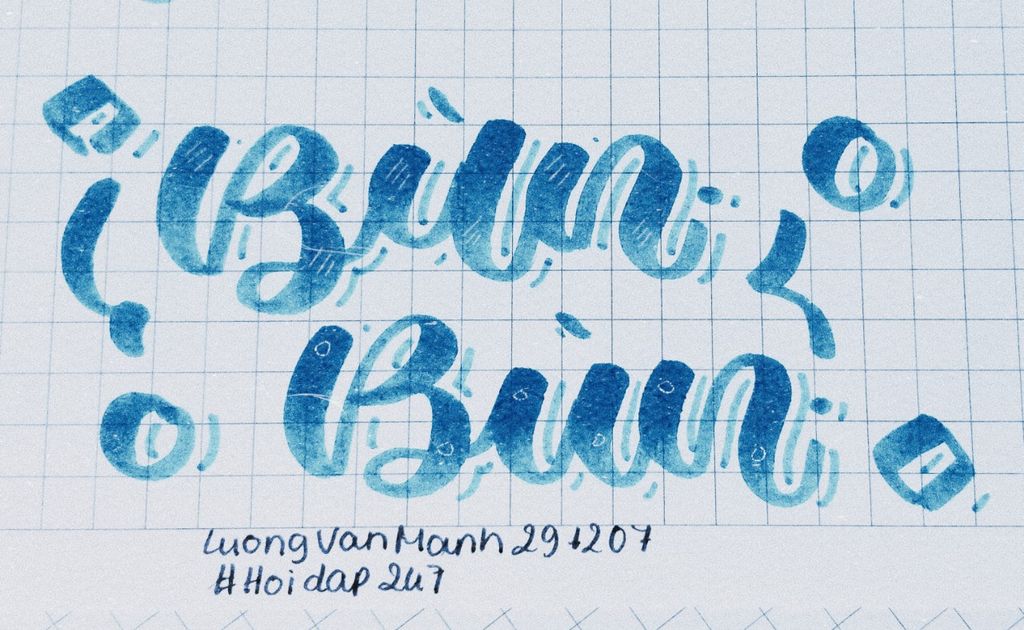 Bùn
Bùn
LuongVanManh291207
#Hoidap247